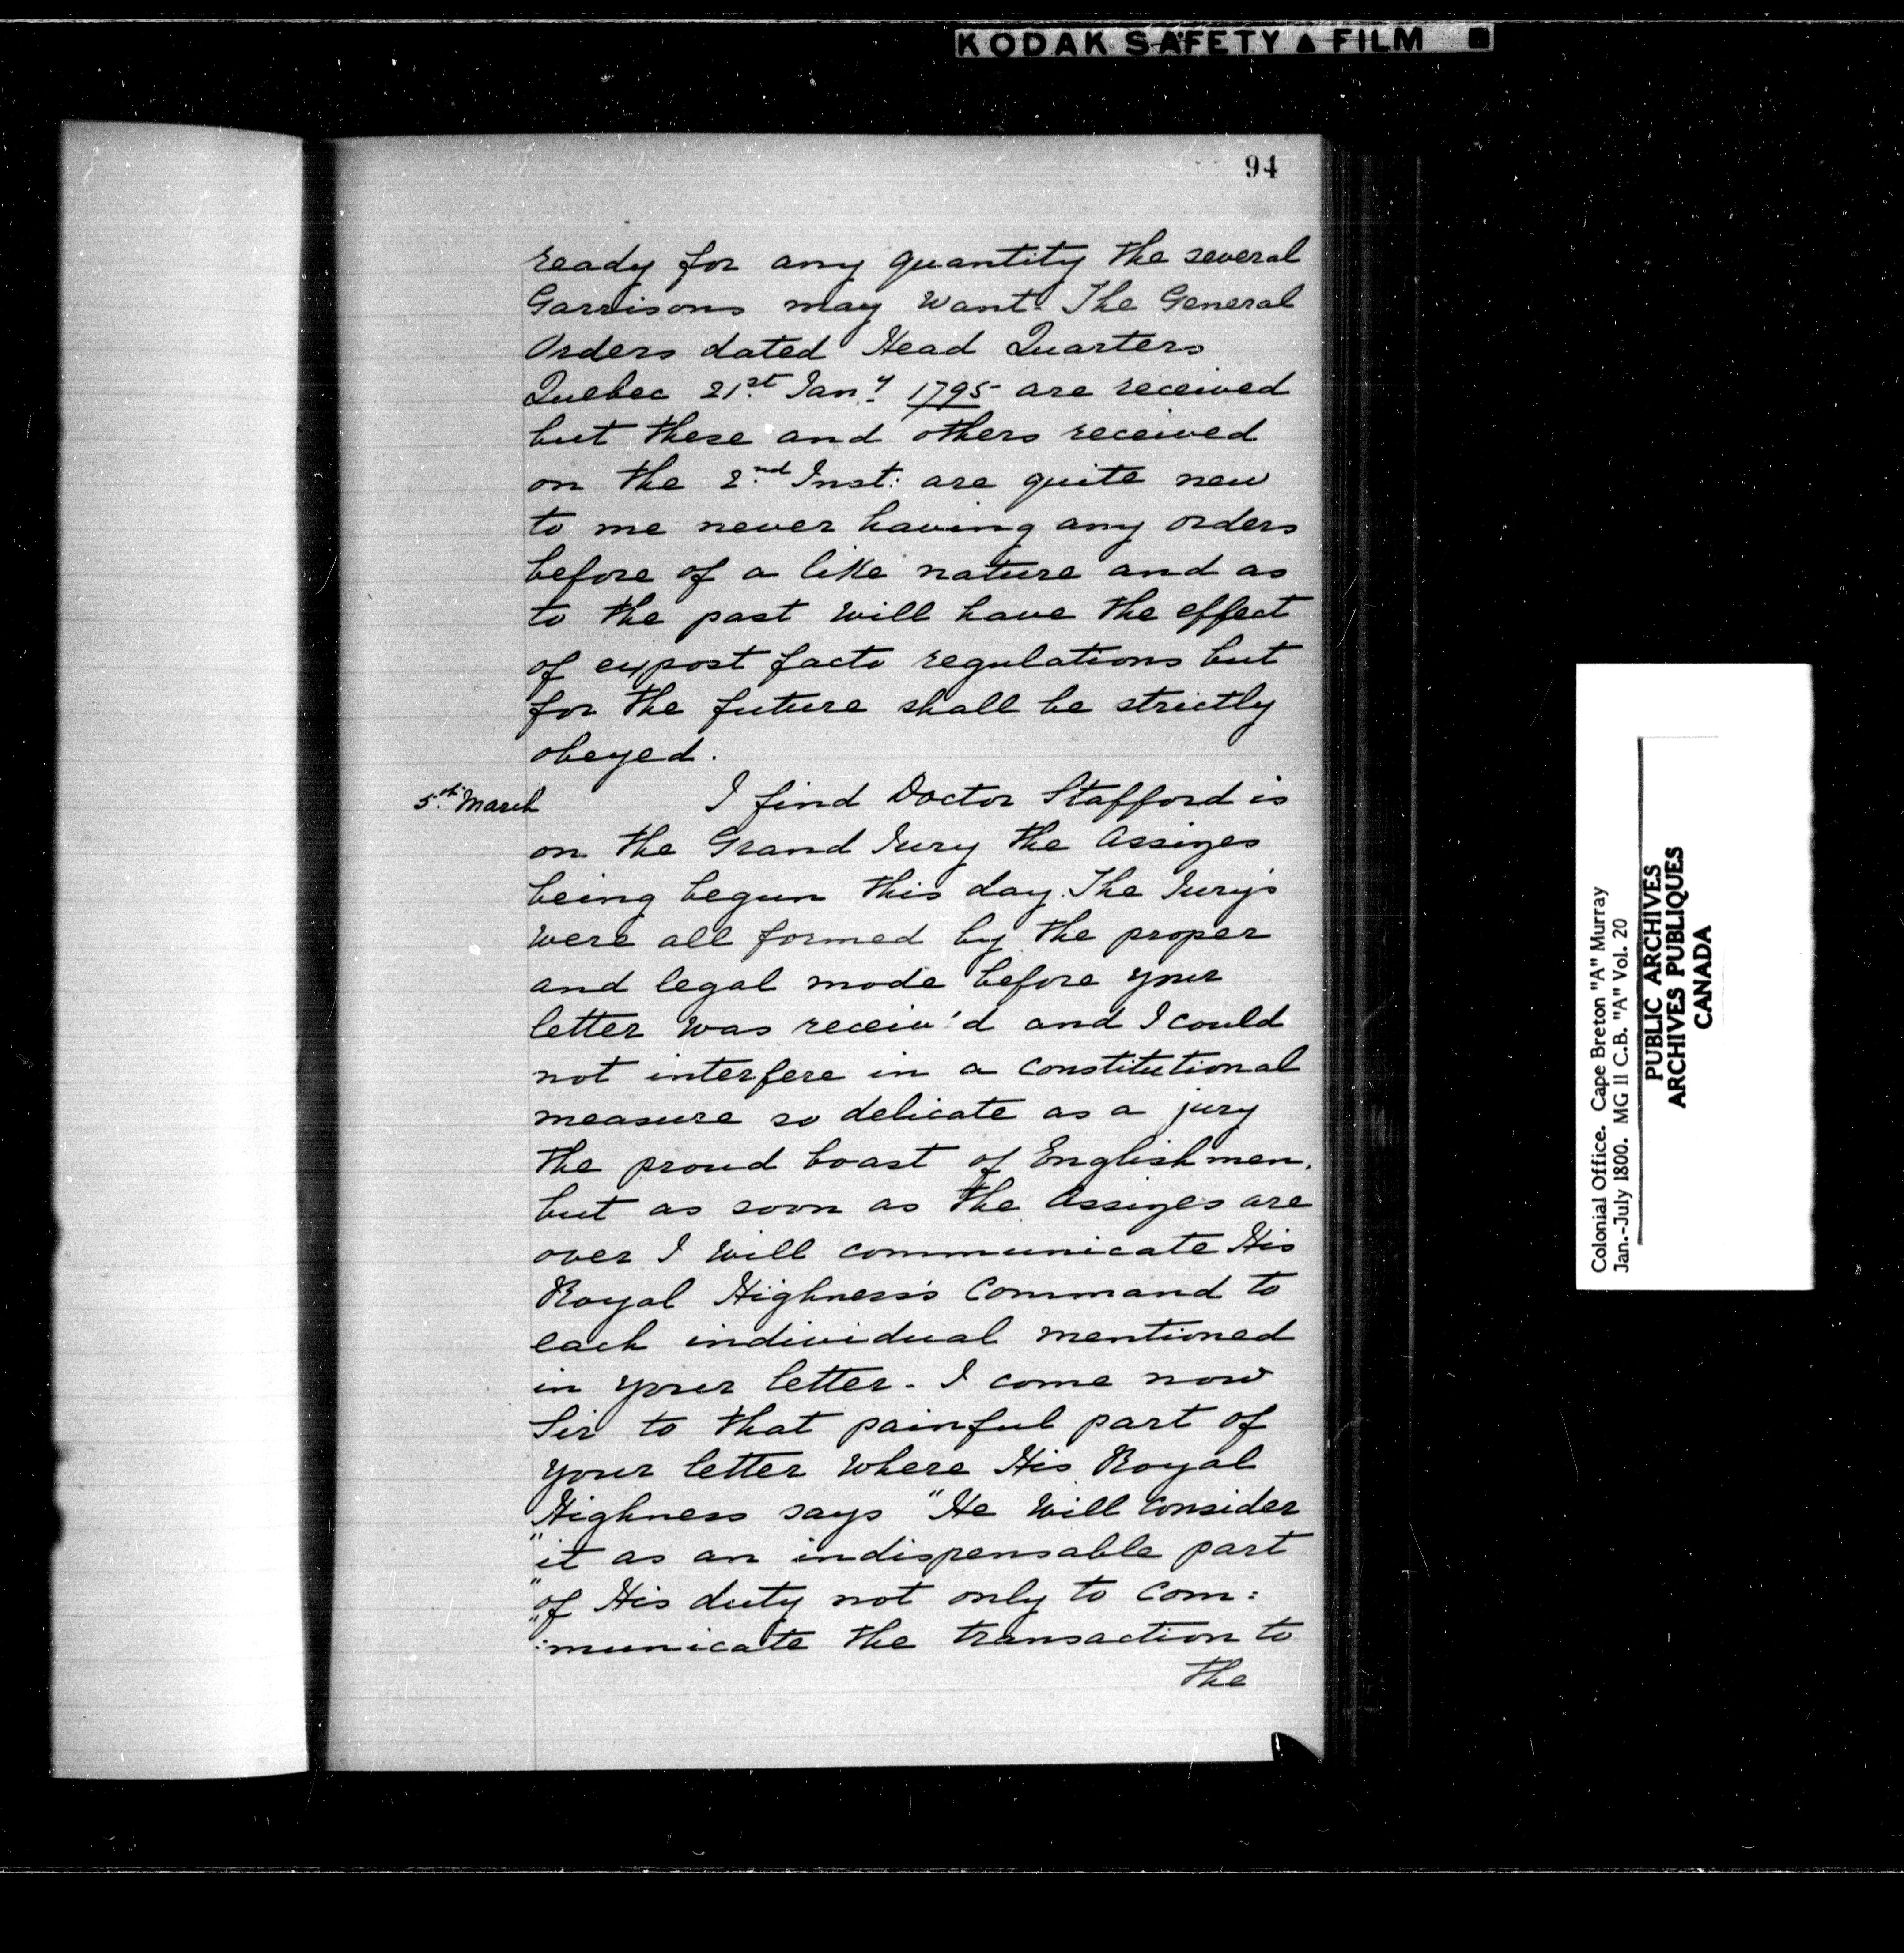 KODAK SAFETY ▲ FILM
94
ready for any quantity the several
Garrisons may want. The General
Orders dated Head Quarters
Quebec 21st. Jany. 1795 are received
but these and others received
on the 2nd. Inst: are quite new
to me never having any orders
before of a like nature and as
to the past will have the effect
of expost facto regulations but
for the future shall be strictly
obeyed.
5th. March I find Doctor Stafford is
on the Grand Jury the Assizes
being begun this day. The Jury's
were all formed by the proper
and legal mode before your
letter was receiv'd and I could
not interfere in a constitutional
measure so delicate as a jury
the proud boast of Englishmen,
but as soon as the Assizes are
over I will communicate His
Royal Highness's Command to
each individual mentioned
in your letter - I come now
Sir to that painful part of
your letter where His Royal
Highness says "He will consider
"it as an indispensable part
"of His duty not only to com:
":municate the transaction to
the
Colonial Office. Cape Breton "A" Murray
Jan.-July 1800. MG 11 C.B. "A" Vol. 20
PUBLIC ARCHIVES
ARCHIVES PUBLIQUES
CANADA